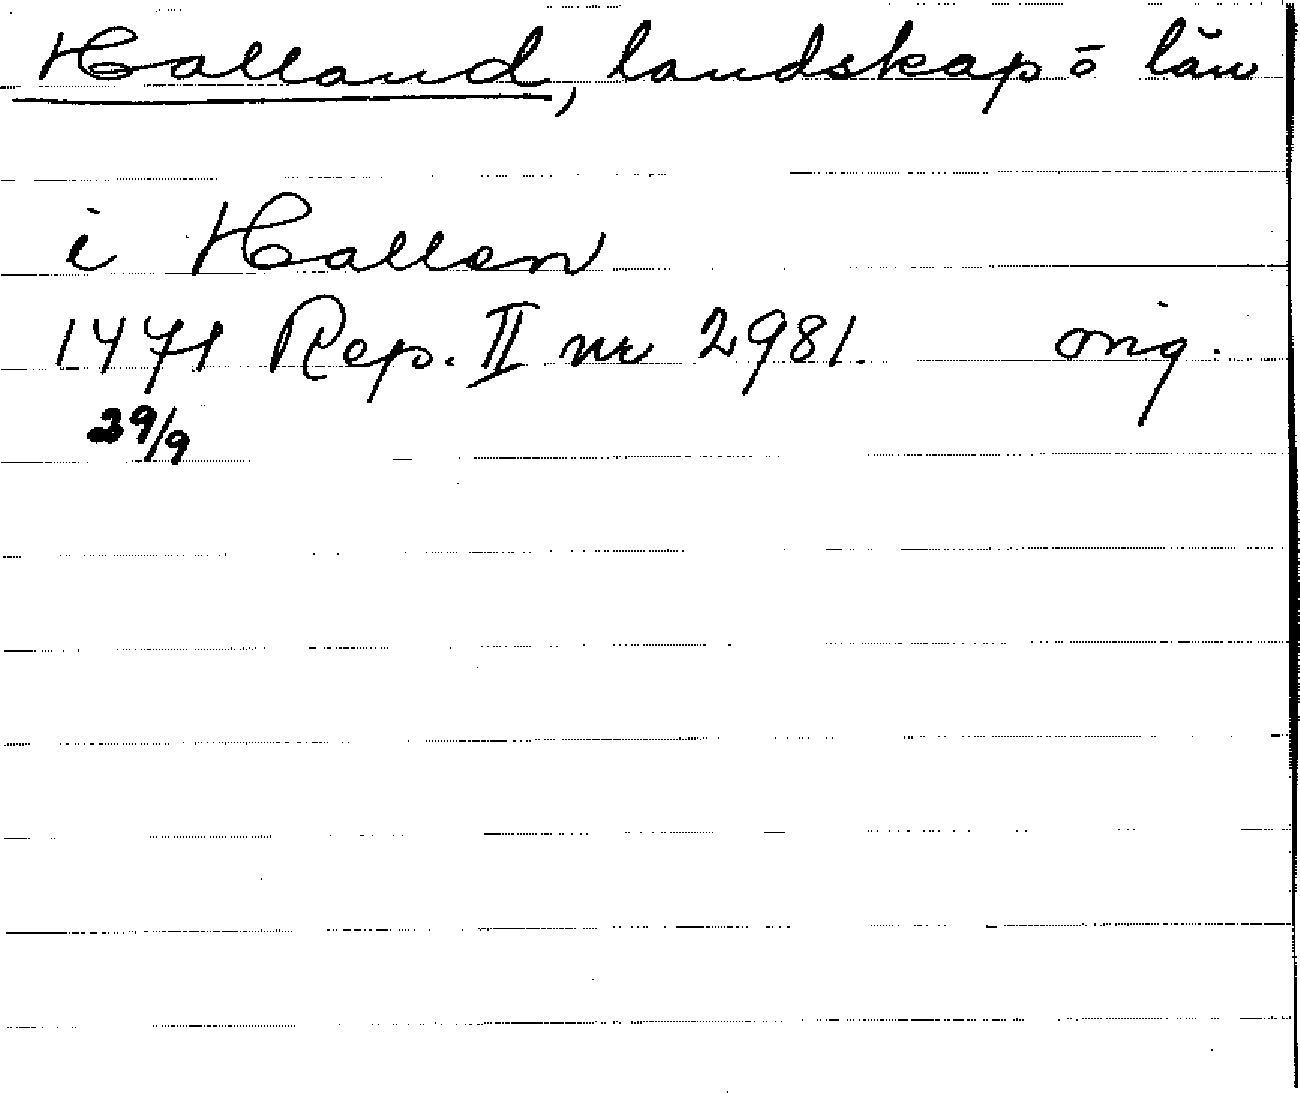 Halland, landskap o län
i Hallan
1471 Rep. II nr 2981. orig.
29/9